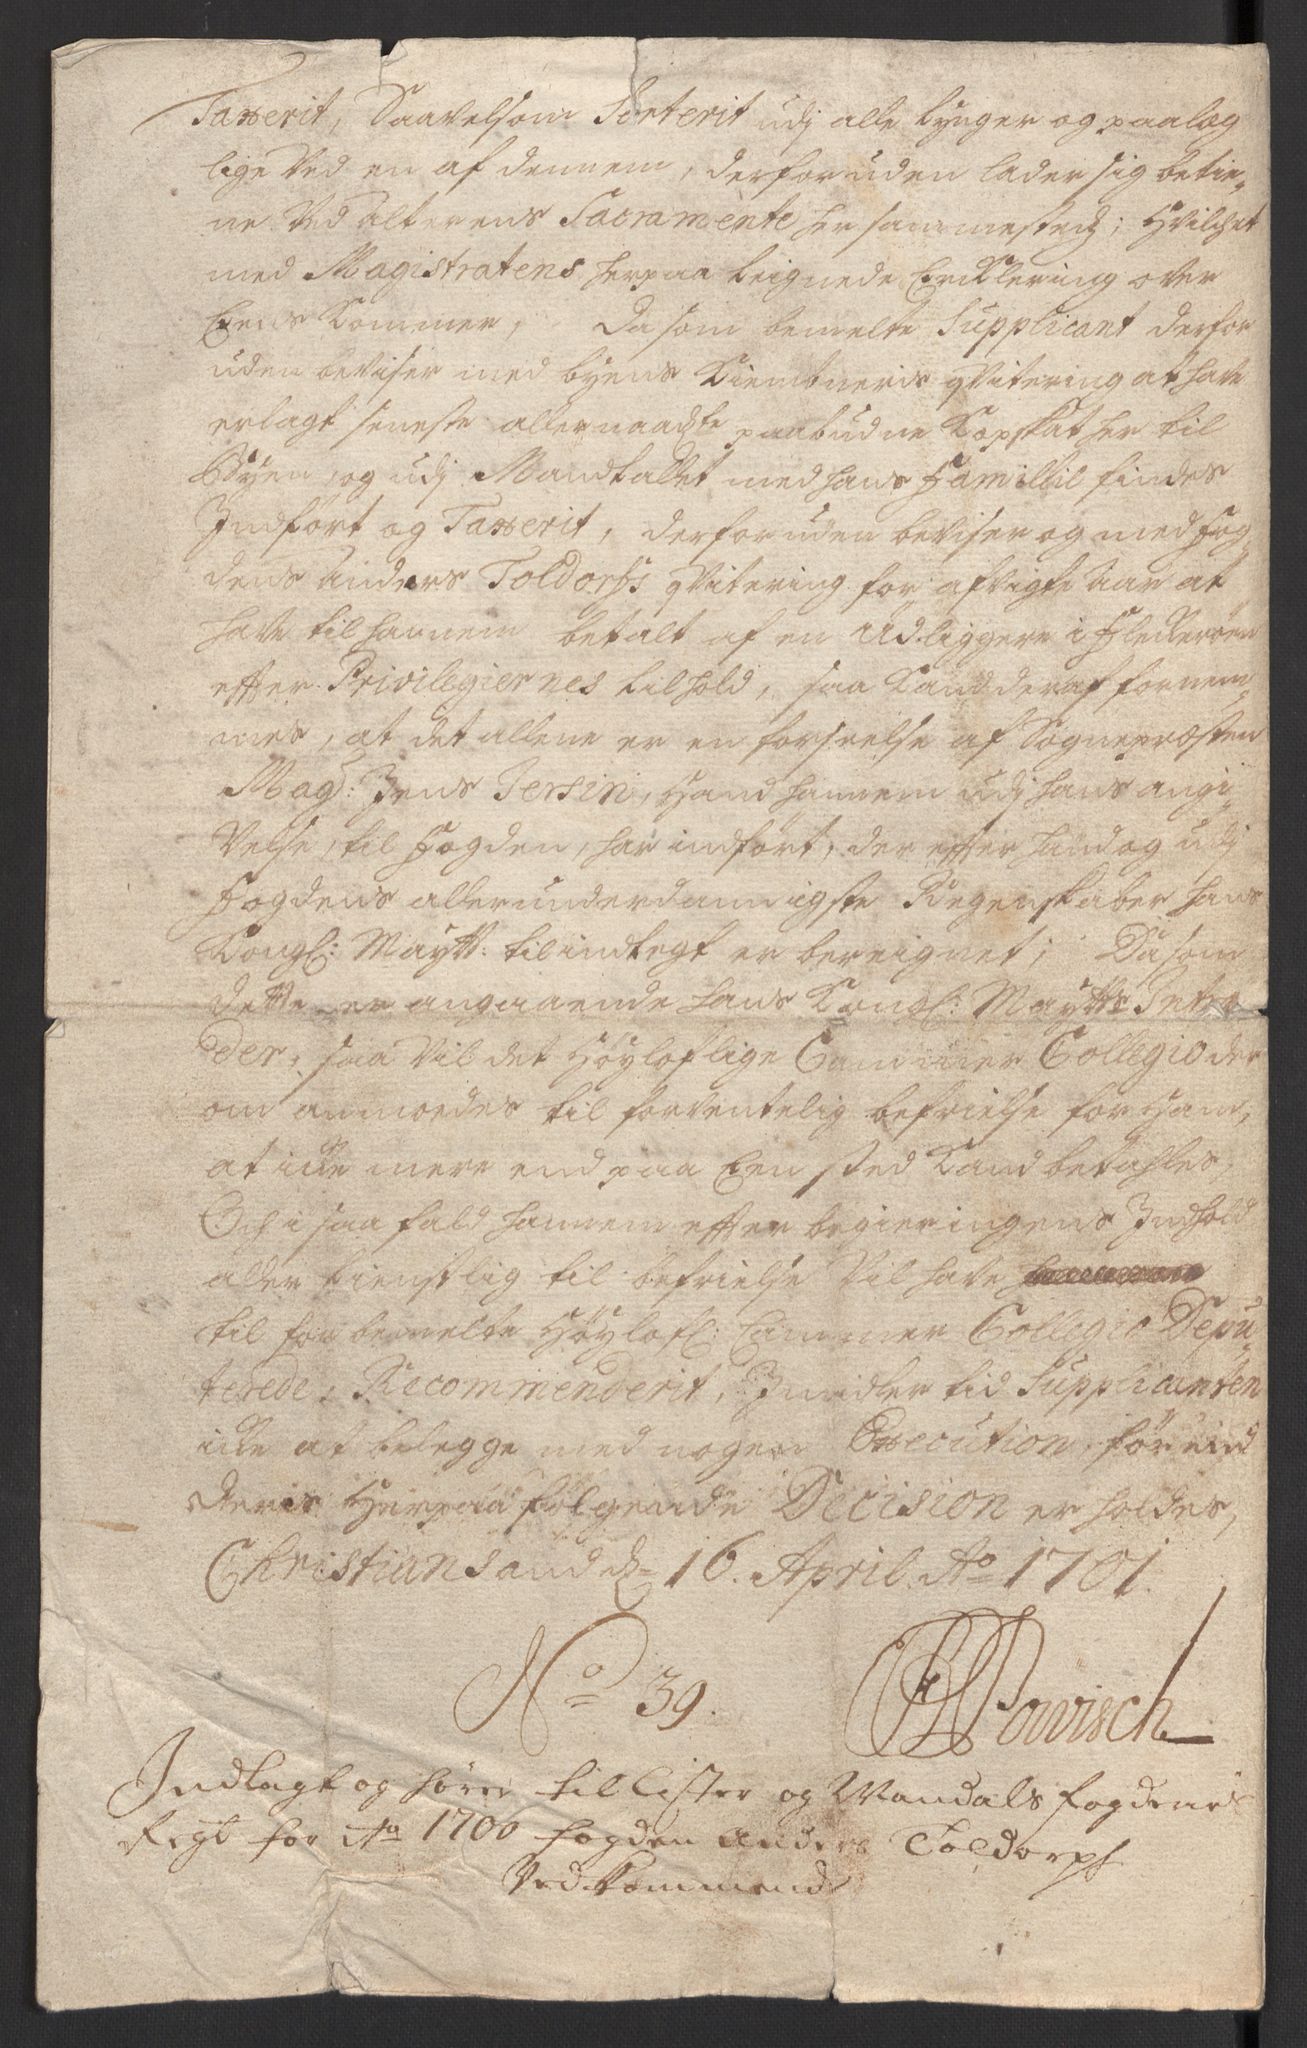 Taxerit, Saavelsom Sorterit udj alle tynger og paalæg
lige Ved en af dennem, derforuden lader sig betie-
ne Ved alterens Sacramente her sammesteds; Hvilchet
med Magistratens herpaa teignede Erklering over
Eens kommer, Da som bemelte Supplicant derfor
uden beviser med byens Kiemneris qvitering at have
erlagt seneste allernaadste paabudne Kopskat her til
Byen, og udj Mandtallet med hans Famillie findes
Indført og Taxerit, derforuden beviser og med fog-
dens Anders Toldorphs qvitering for afvigte Aar at
have til hannem betalt af en Udliggere i Fleckerøen
effter Privilegiernes tilhold, saa kand deraf fornem-
mes, at det allene er en forseelse af Sognepræsten
Mag: Jens Jersin, Hand hannem udj hans angi-
velse, til Fogden, har indført, der effter hand og udj
Fogdens allerunderdannigste Regenskaber hans
Kongl: Maytt: til indtegt er bereignet; Da som
dette er angaaende hans Kongl: Maytts Intra
der, saa vil det Høyloflige Cammer Collegio der
om anmodes til forventelig befrielse for Ham,
at icke mere end paa Een sted kand betahles,
Och i saa fald hannem effter begieringens Indhold
aller tienstlig til befrielse Vil have
til for bemelte Høylofl: Cammer Collegio Depu-
terede, Recommenderit, Imidlertid Supplicanten
icke at belegge med nogen Execution, før end
deris Herpaa følgende Decision er holdes,
Christiansand d 16. April Ao 1701.
No 39. Powisch
Indlagt og hører til Lister og Mandals fogderies
Regt for Ao 1700 fogden Anders Toldorph
Vedkommende